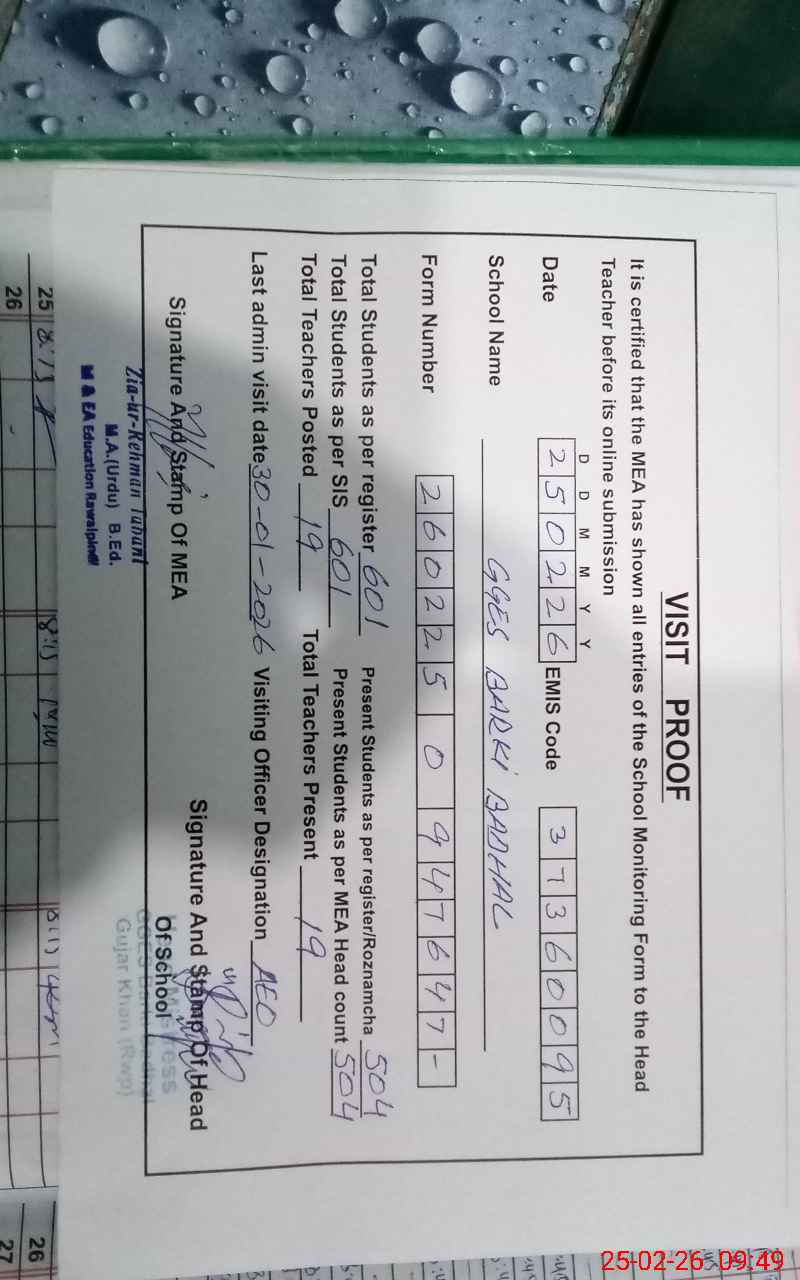 VISIT PROOF
It is certified that the MEA has shown all entries of the School Monitoring Form to the Head
Teacher before its online submission
D D M M Y Y
Date 2 5 0 2 2 6 EMIS Code 3 7 3 6 0 0 9 5
School Name GGES BARKI BADHAL
Form Number 2 6 0 2 2 5 0 9 4 7 6 4 7 -
Total Students as per register 601 Present Students as per register/Roznamcha 504
Total Students as per SIS 601 Present Students as per MEA Head count 504
Total Teachers Posted 19 Total Teachers Present 19
Last admin visit date 30-01-2026 Visiting Officer Designation AEO
Signature And Stamp Of MEA
Signature And Stamp Of Head
Of School
Zia-ur-Rehman
M.A.(Urdu) B.Ed.
M & EA Education Rawalpindi
GGES Barki Badhal
Gujar Khan (Rwp)
25 8:15 8:15
26
26
27
25-02-26 09:49